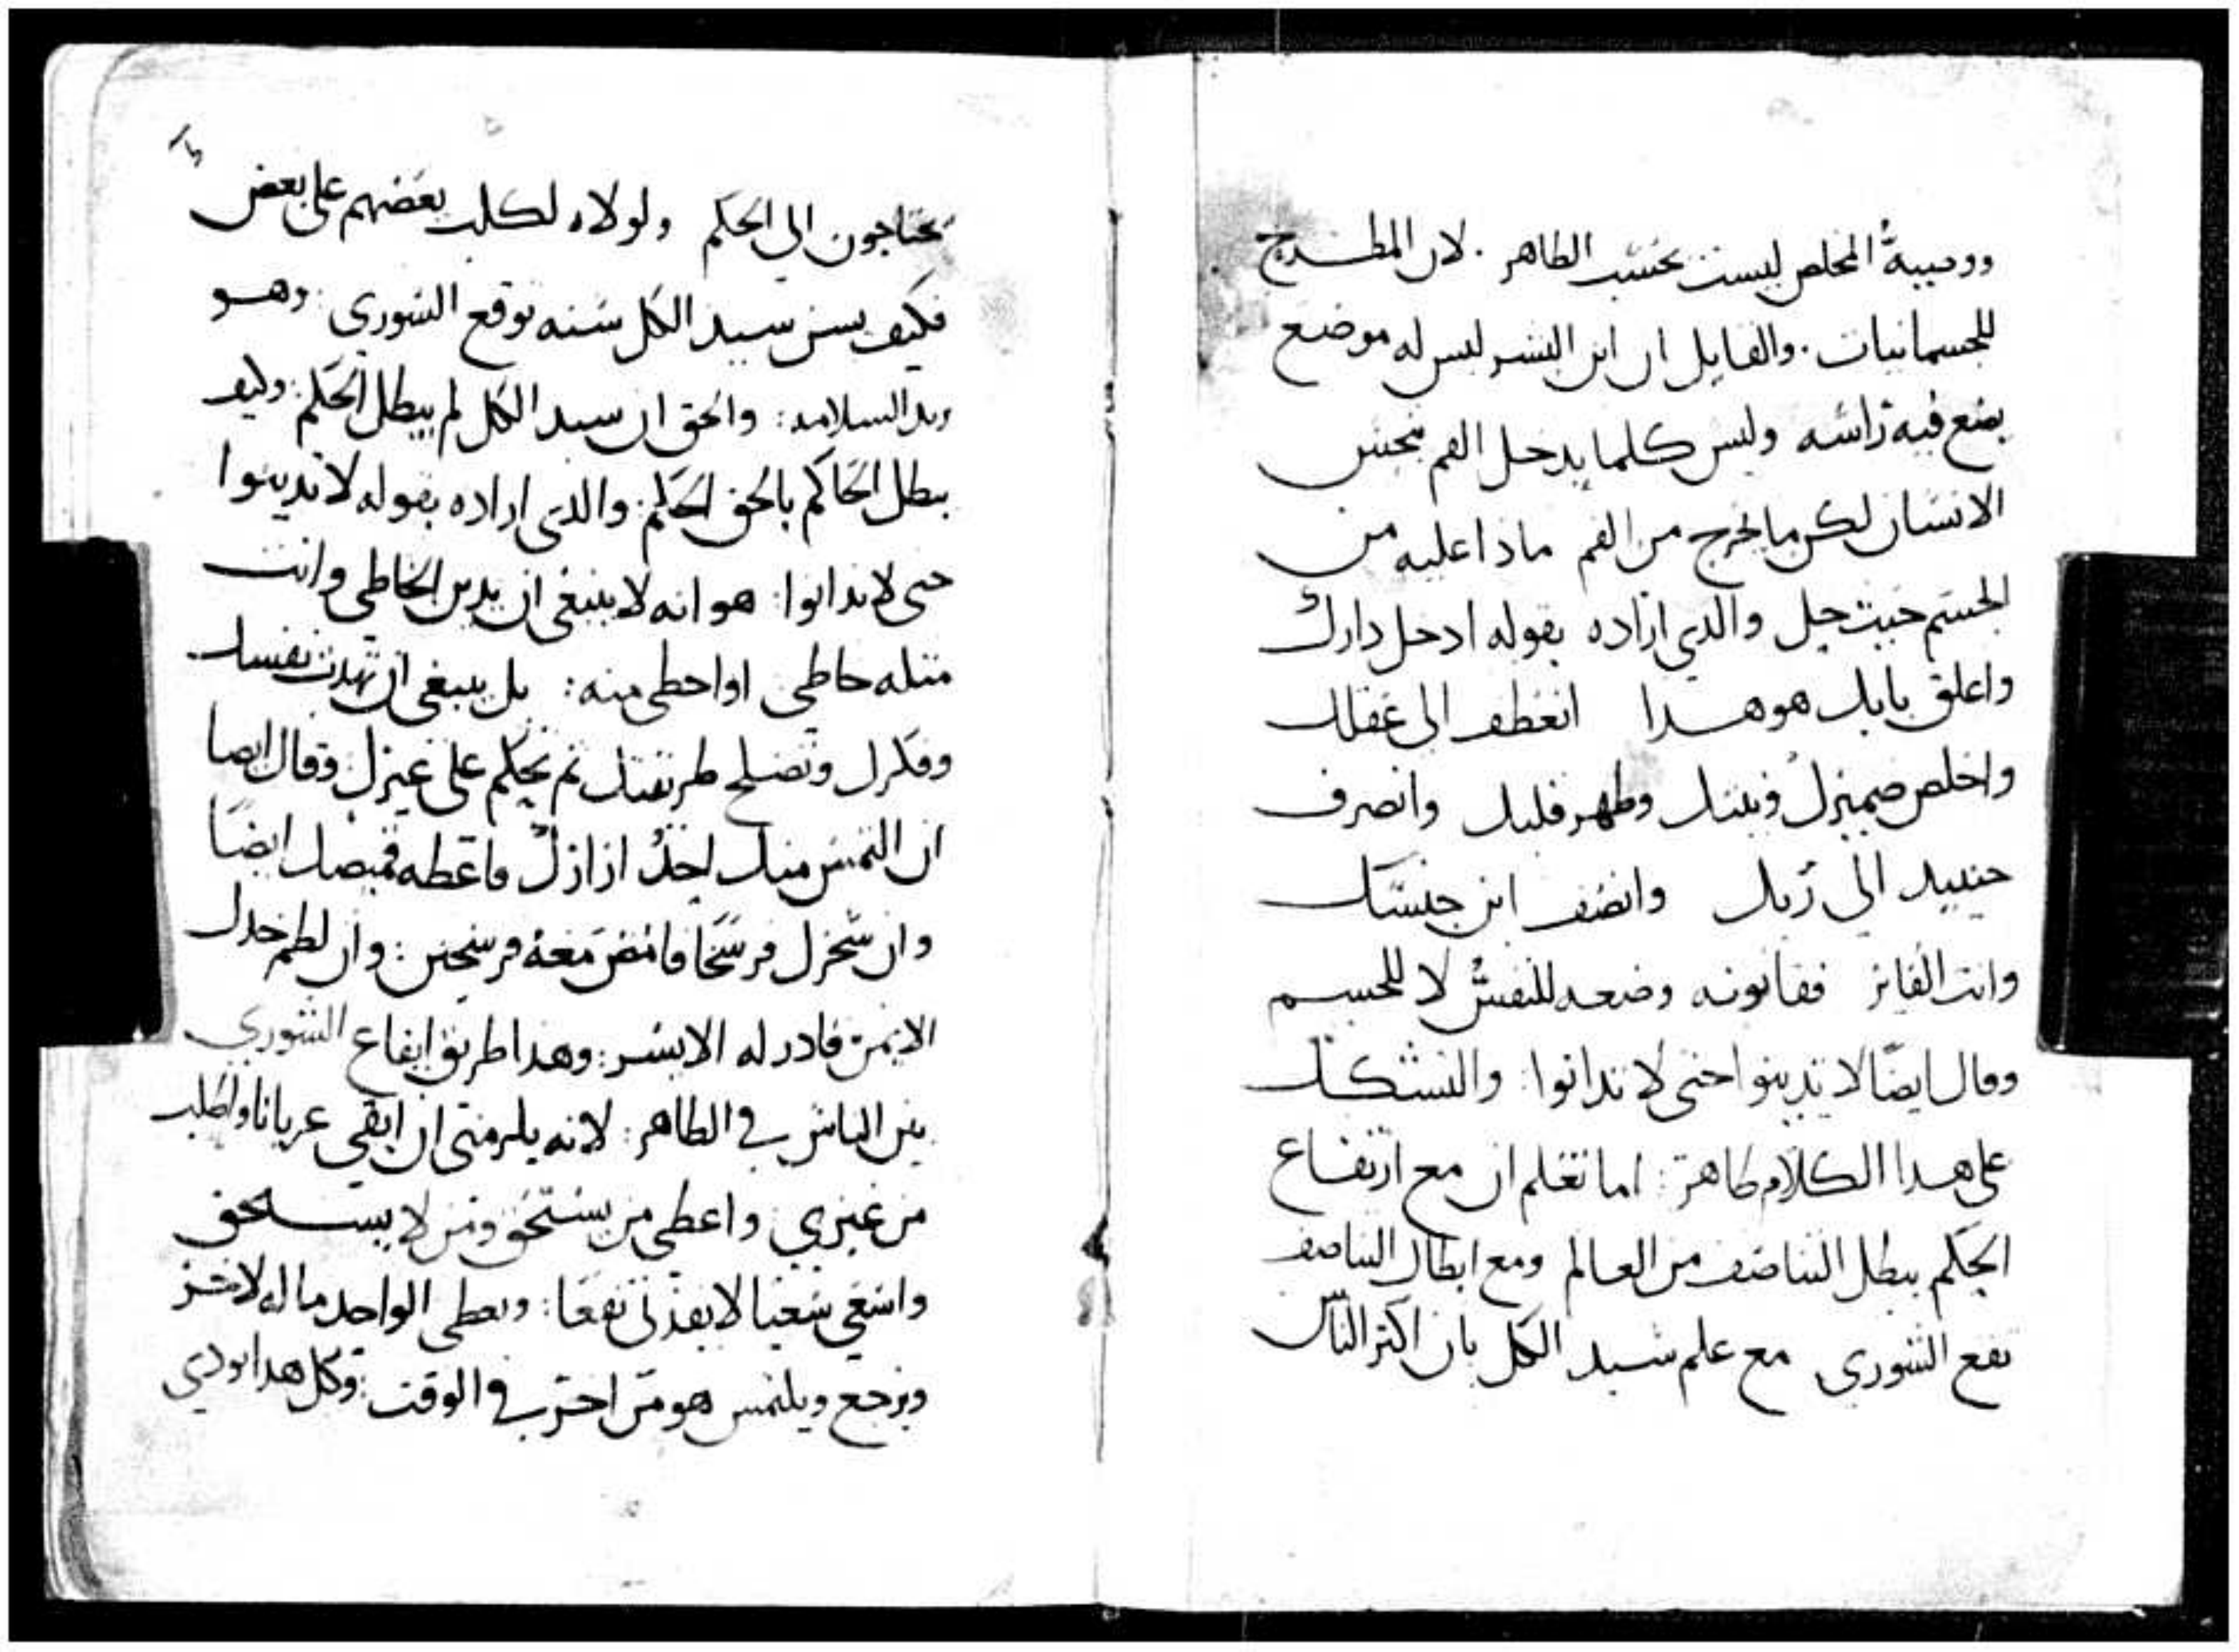 ووصية المخلص ليست بحسب الطاهر . لان المطرح
للجسمانيات . والقايل ان ابن البشر ليس له موضع
يضع فيه راسه وليس كلما يدخل الفم ينجس
الانسان لكن ما يخرج من الفم ماذا عليه من
الجسم حيث حل والدي اراده بقوله ادخل دارك
واغلق بابك هو هدا انعطف الى عقلك
واخلص ضميرك ونيتك وطهر قلبك وانصرف
حينيد الى ربك وانصف ابن جنسك
وانت الفايز فقانونه وضعه للنفس لا للجسم
وقال ايضا لا تدينوا حتى لا تدانوا : والتشكك
على هدا الكلام طاهر : اما تعلم ان مع ارتفاع
الحكم يبطل التناصف من العالم ومع ابطال التناصف
تقع الشورى مع علم سيد الكل بان اكثر الناس
يحتاجون الى الحكم ولولاه لكلب بعضهم على بعض
فكيف يسن سيد الكل سنه توقع الشورى : وهو
السلامه : والحق ان سيد الكل لم يبطل الحكم : وكيف
يبطل الحاكم بالحق الحكم : والدي اراده بقوله لا تدينوا
حتى لا تدانوا : هو انه لا ينبغي ان يدين الخاطي وانت
مثله خاطي او اخطى منه : بل ينبغي ان تهدب نفسك
وفكرك وتصلح طريقتك ثم تحكم على غيرك وقال ايضا
ان التمس منك احد ازارك فاعطه قميصك ايضا
وان سخرك فرسخا فامض معه فرسخين : وان لطم خدك
الايمن فادر له الايسر : وهدا طريق ايقاع الشوري
بين الناس في الطاهر : لانه يلزمني ان ابقى عريانا واطلب
من غيري واعطي من يستحق ومن لا يستحق
واسعى سعيا لا يفدني نفعا : ويعطى الواحد ماله لاخر
ويرجع ويلتمس هو من اخر في الوقت : وكل هدا يودي